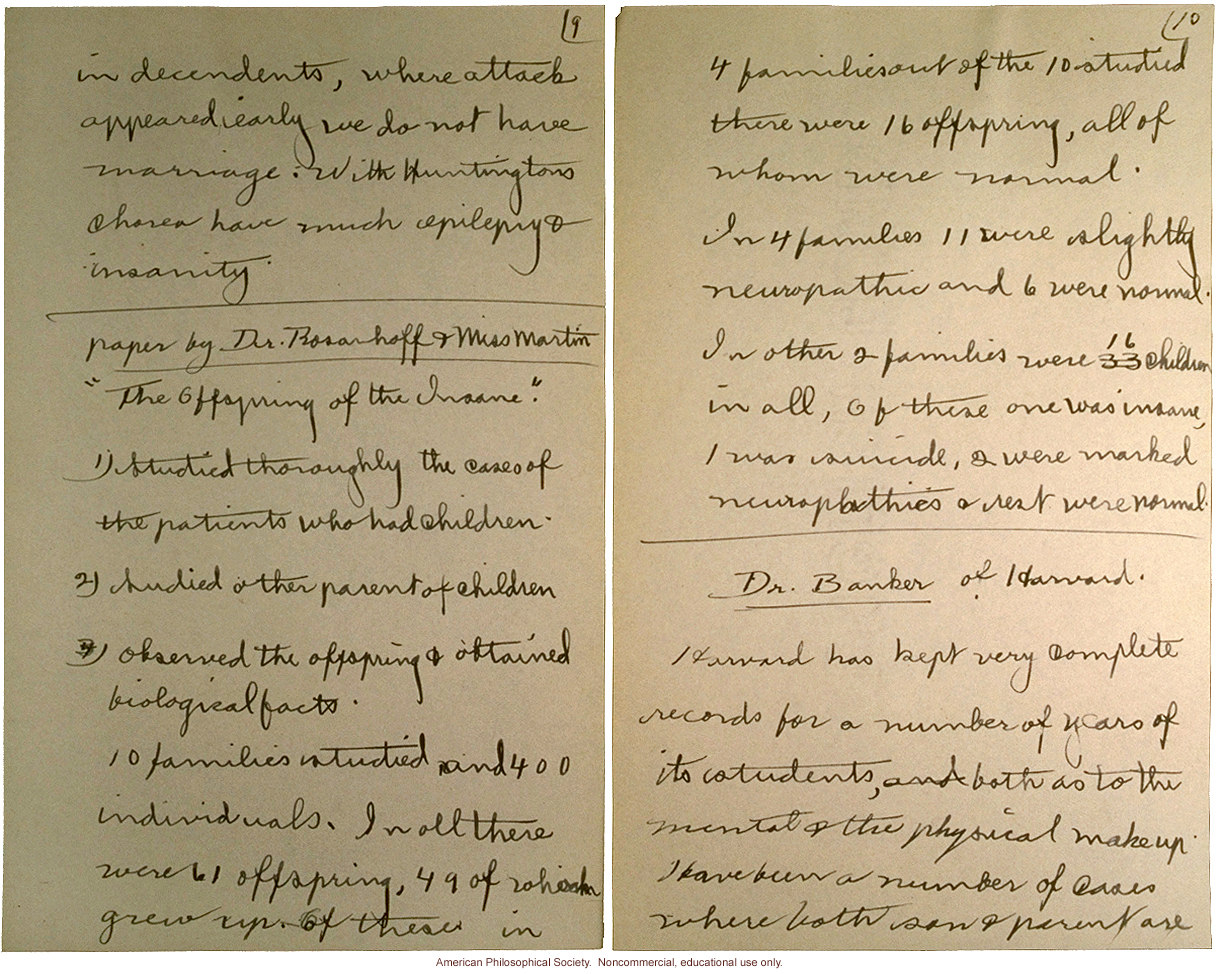 9
in decendents, where attack
appeared early we do not have
marriage. With Huntingtons
Chorea have much epilepsy &
insanity.
paper by Dr. Rosanhoff & Miss Martin
"The Offspring of the Insane".
1) Studied thoroughly the cases of
the patients who had children.
2) Studied other parent of children
3) observed the offspring & obtained
biological facts.
10 families studied and 400
individuals. In all there
were 61 offspring, 49 of which
grew up. Of these in
10
4 families out of the 10 studied
there were 16 offspring, all of
whom were normal.
In 4 families 11 were slightly
neuropathic and 6 were normal.
In other 2 families were 33 16 children
in all, Of these one was insane,
1 was suicide, 2 were marked
neuropathics & rest were normal.
Dr. Banker of Harvard.
Harvard has kept very complete
records for a number of years of
its students, and both as to the
mental & the physical make up.
Have been a number of cases
where both son & parent are
American Philosophical Society. Noncommercial, educational use only.